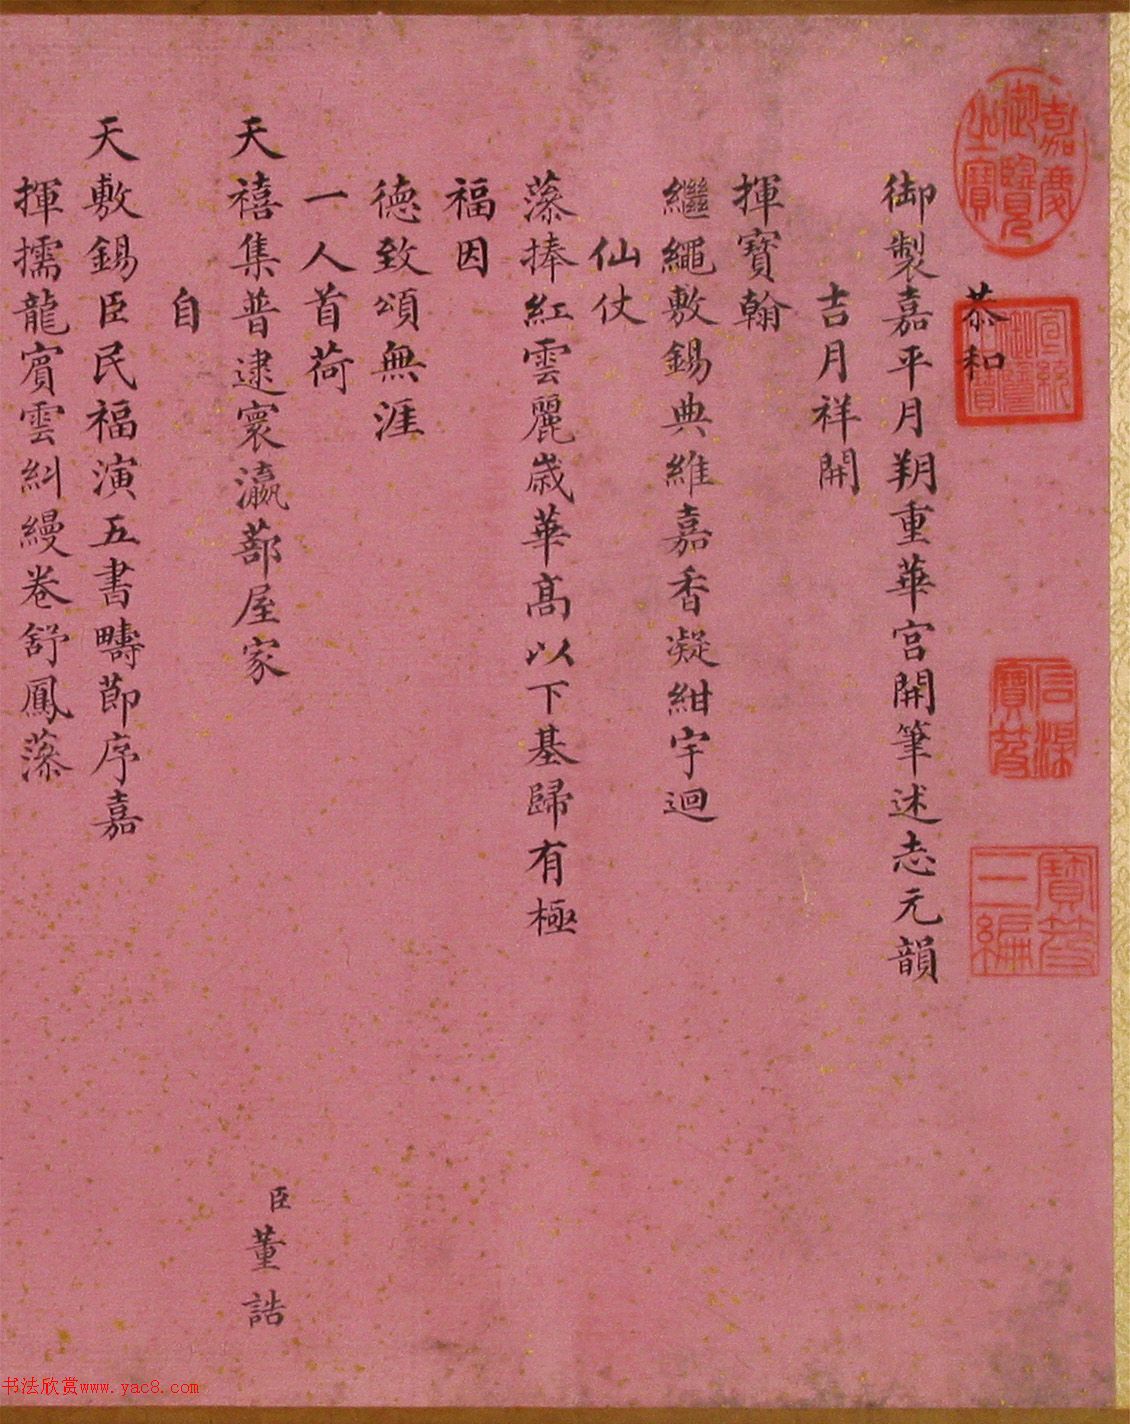 恭和
御製嘉平月朔重華宮開筆述志元韻
吉月祥開
揮寶翰
繼繩敷錫典維嘉香凝紺宇迴
仙仗
藻捧紅雲麗歲華高以下基歸有極
福因
德致頌無涯
一人首荷
天禧集普逮寰瀛蔀屋家
臣董誥
自
天敷錫臣民福演五書疇節序嘉
揮擩龍賓雲糾縵卷舒鳳藻
嘉慶御覽之寶
寶笈三編
书法欣赏www.yac8.com